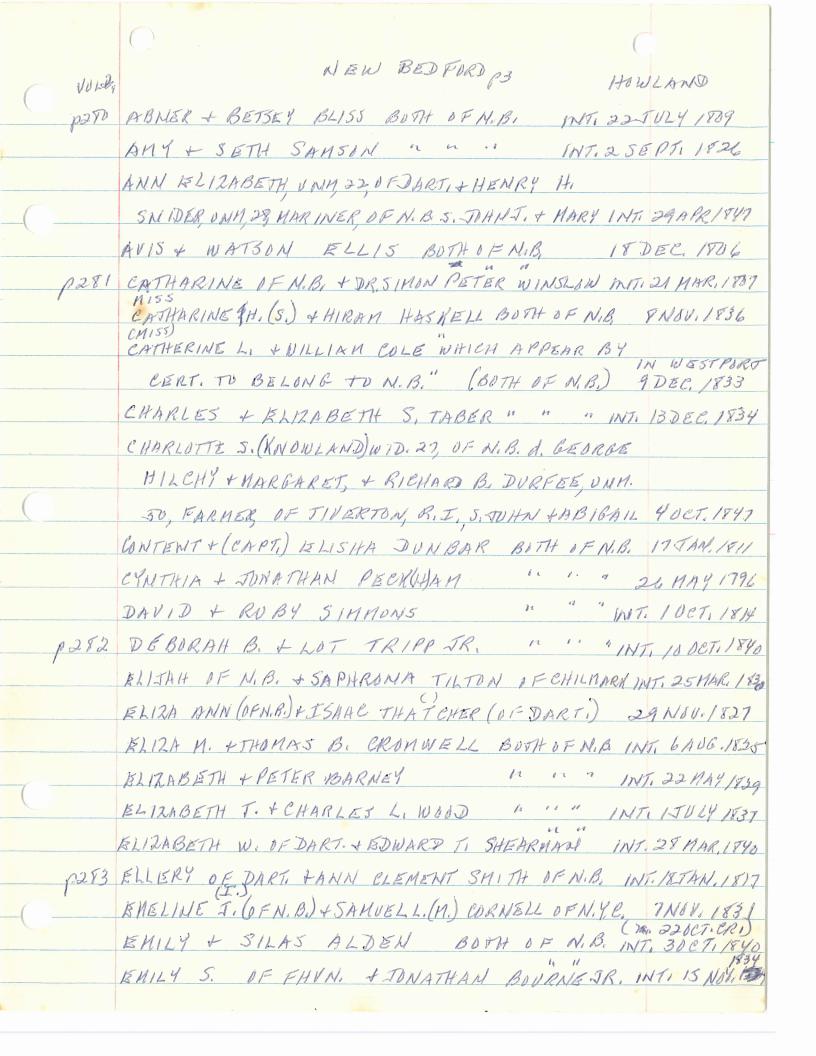 NEW BEDFORD p3 HOWLAND
VOL 2,
p280 ABNER + BETSEY BLISS BOTH OF N.B. INT. 22 JULY 1809
AMY + SETH SAMSON " " " INT. 2 SEPT. 1826
ANN ELIZABETH, UNM, 22, OF DART. + HENRY H.
SNIDER, UNM, 28, MARINER, OF N.B. S. JOHN J. + MARY INT. 29 APR 1847
AVIS + WATSON ELLIS BOTH OF N.B. 18 DEC. 1806
" "
p281 CATHARINE OF N.B. + DR. SIMON PETER WINSLOW INT. 21 MAR. 1837
MISS
CATHARINE H. (S.) + HIRAM HASKELL BOTH OF N.B. 8 NOV. 1836
(MISS)
CATHERINE L. + WILLIAM COLE "WHICH APPEAR BY
IN WESTPORT
CERT. TO BELONG TO N.B." (BOTH OF N.B.) 9 DEC. 1833
CHARLES + ELIZABETH S. TABER " " " INT. 13 DEC. 1834
CHARLOTTE S. (KNOWLAND) WID. 27, OF N.B. d. GEORGE
HILCHY + MARGARET, + RICHARD B. DURFEE, UNM.
50, FARMER, OF TIVERTON, R.I., S. JOHN + ABIGAIL 4 OCT. 1847
CONTENT + (CAPT.) ELISHA DUNBAR BOTH OF N.B. 17 JAN. 1811
CYNTHIA + JONATHAN PECK(H)AM " " " 26 MAY 1796
DAVID + RUBY SIMMONS " " " INT. 1 OCT. 1814
p282 DEBORAH B. + LOT TRIPP JR. " " " INT. 10 OCT. 1840
ELIJAH OF N.B. + SAPHRONIA TILTON OF CHILMARK INT. 25 MAR. 1830
( )
ELIZA ANN (OF N.B.) + ISAAC THATCHER (OF DART.) 29 NOV. 1827
ELIZA M. + THOMAS B. CROMWELL BOTH OF N.B INT. 6 AUG. 1835
ELIZABETH + PETER BARNEY " " " INT. 22 MAY 1829
ELIZABETH J. + CHARLES L. WOOD " " " INT. 1 JULY 1837
" "
ELIZABETH W. OF DART. + EDWARD T. SHEARMAN INT. 28 MAR. 1840
p283 ELLERY OF DART. + ANN CLEMENT SMITH OF N.B. INT. 18 JAN. 1817
(I.)
EMELINE J. (OF N.B.) + SAMUEL L. (M.) CORNELL OF N.Y.C. 7 NOV. 1831
(m. 22 OCT. CR1)
EMILY + SILAS ALDEN BOTH OF N.B. INT. 3 OCT. 1840
" " 1834
EMILY S. OF FHVN. + JONATHAN BOURNE JR. INT. 15 NOV.